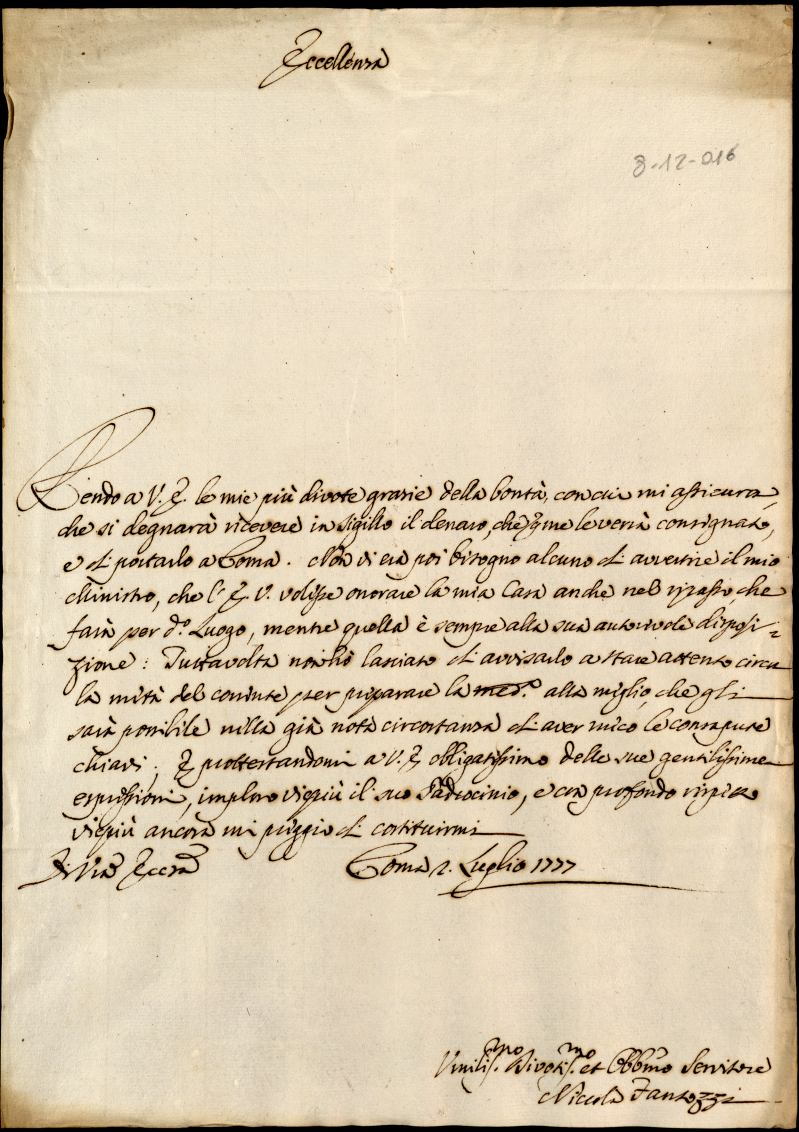 Eccellenza
8-12-016
Rendo a V. E. le mie più divote grazie della bontà, con cui mi assicura,
che si degnarà ricevere in sigillo il denaro, che le verrà consignato,
e di portarlo a Roma. Non vi era poi bisogno alcuno di avvertire il mio
Ministro, che l'E. V. volesse onorare la mia Casa anche nel ripasso, che
farà per d.º Luogo, mentre quella è sempre alla sua autorevole disposi=
zione: Tuttavolta non hò lasciato di avvisarlo a stare attento circa
la mità del corrente per preparare la med.ª alla meglio, che gli
sarà possibile nella già nota circostanza di aver meco le consapute
chiavi; E protestandomi a V. E. obligatissimo delle sue gentilissime
espressioni, imploro viepiù il suo Padrocinio, e con profondo rispetto
viepiù ancora mi preggio di costituirmi
Di V.ra Ecc.za Roma 2. Luglio 1777
Umiliss.mo Divotiss.mo et Obb.mo Servitore
Niccola Fantozzi